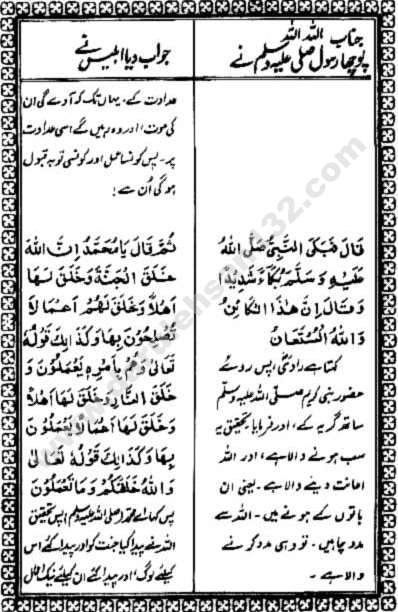 جناب اللہ اللہ
پوچھا رسول صلی علیہ وسلم نے
قَالَ فَبَكَى النَّبِيُّ صَلَّى اللهُ
عَلَيْهِ وَسَلَّمَ بُكَاءً شَدِيْدًا
وَقَالَ اِنَّ هٰذَا الْكَائِنُ
وَاللهُ الْمُسْتَعَانُ
کہتا ہے راوی، پس روئے
حضور نبی کریم صلی اللہ علیہ وسلم
ساتھ گریہ کے، اور فرمایا بتحقیق یہ
سب ہونے والا ہے، اور اللہ
اعانت دینے والا ہے۔ یعنی ان
باتوں کے ہونے میں۔ اللہ سے
مدد چاہیں۔ تو وہی مدد کرنے
والا ہے۔
جواب دیا ابلیس نے
عداوت کے، یہاں تک کہ آوے گی ان
کی موت اور وہ رہیں گے اسی عداوت
پر۔ پس کونسا عمل اور کونسی توبہ قبول
ہوگی اُن سے!
ثُمَّ قَالَ يَا مُحَمَّدُ اِنَّ اللهَ
خَلَقَ الْجَنَّةَ وَخَلَقَ لَهَا
اَهْلًا وَخَلَقَ لَهُمْ اَعْمَالًا
تُصْلِحُوْنَ بِهَا وَكَذَالِكَ قَوْلُهُ
تَعَالٰى وَهُمْ بِاَمْرِهٖ يَعْمَلُوْنَ وَ
خَلَقَ النَّارَ وَخَلَقَ لَهَا اَهْلًا
وَخَلَقَ لَهَا اَعْمَالًا يَعْمَلُوْنَ
بِهَا وَكَذَالِكَ قَوْلُهُ تَعَالٰى
وَاللهُ خَلَقَكُمْ وَمَا تَعْمَلُوْنَ
پس کہا اے محمد (صلی اللہ علیہ وسلم) پس تحقیق
اللہ نے پیدا کیا جنت کو اور پیدا کئے اس
کیلئے لوگ، اور پیدا کئے ان کیلئے نیک اعمال